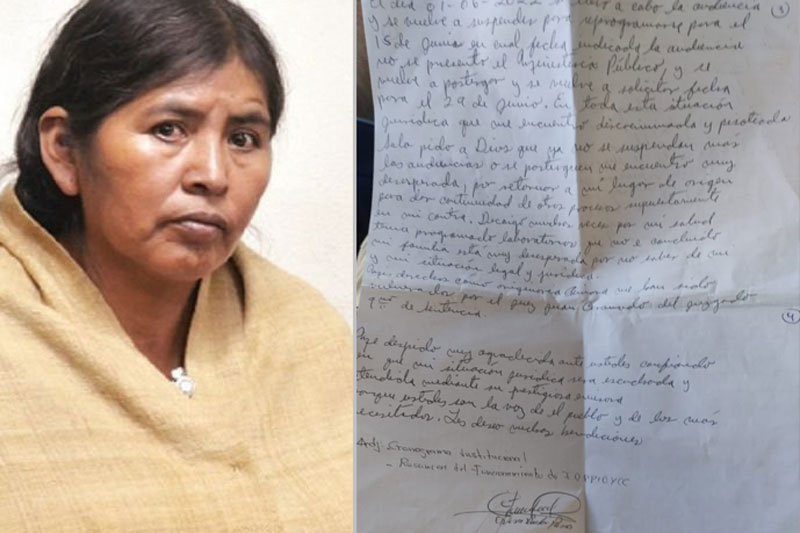 El día 01-06-2022 se llevó a cabo la audiencia
y se vuelve a suspender para reprogramarse para el
15 de Junio en cual fecha indicada la audiencia
no se presento el Ministerio Público, y se
vuelve a postergar y se vuelve a solicitar fecha
para el 29 de Junio. En toda esta situación
Juridica que me encuentro discriminada y pisoteada
Solo pido a Dios que ya no se suspendan mas
las audiencias o se posterguen me encuentro muy
desesperada, por retornar a mi lugar de origen
para dar continuidad de otros procesos supuestamente
en mi contra. Decaigo muchas veces por mi salud
tenia programado laboratorios que no e concluido
mi familia está muy desesperada por no saber de mi
y mi situación legal y juridica.
derechos como originaria me han sido
vulnerados por el juez Juan del juzgado
1ro de Sentencia.
3
4
Me despido muy agradecida ante ustedes confiando
en que mi situación juridica sera escuchada y
atendida mediante su prestigiosa emisora
porque ustedes son la voz de el pueblo y de los mas
necesitados. Les deseo muchas bendiciones
Adj: Cronograma Institucional
- Resumen del Funcionamiento de